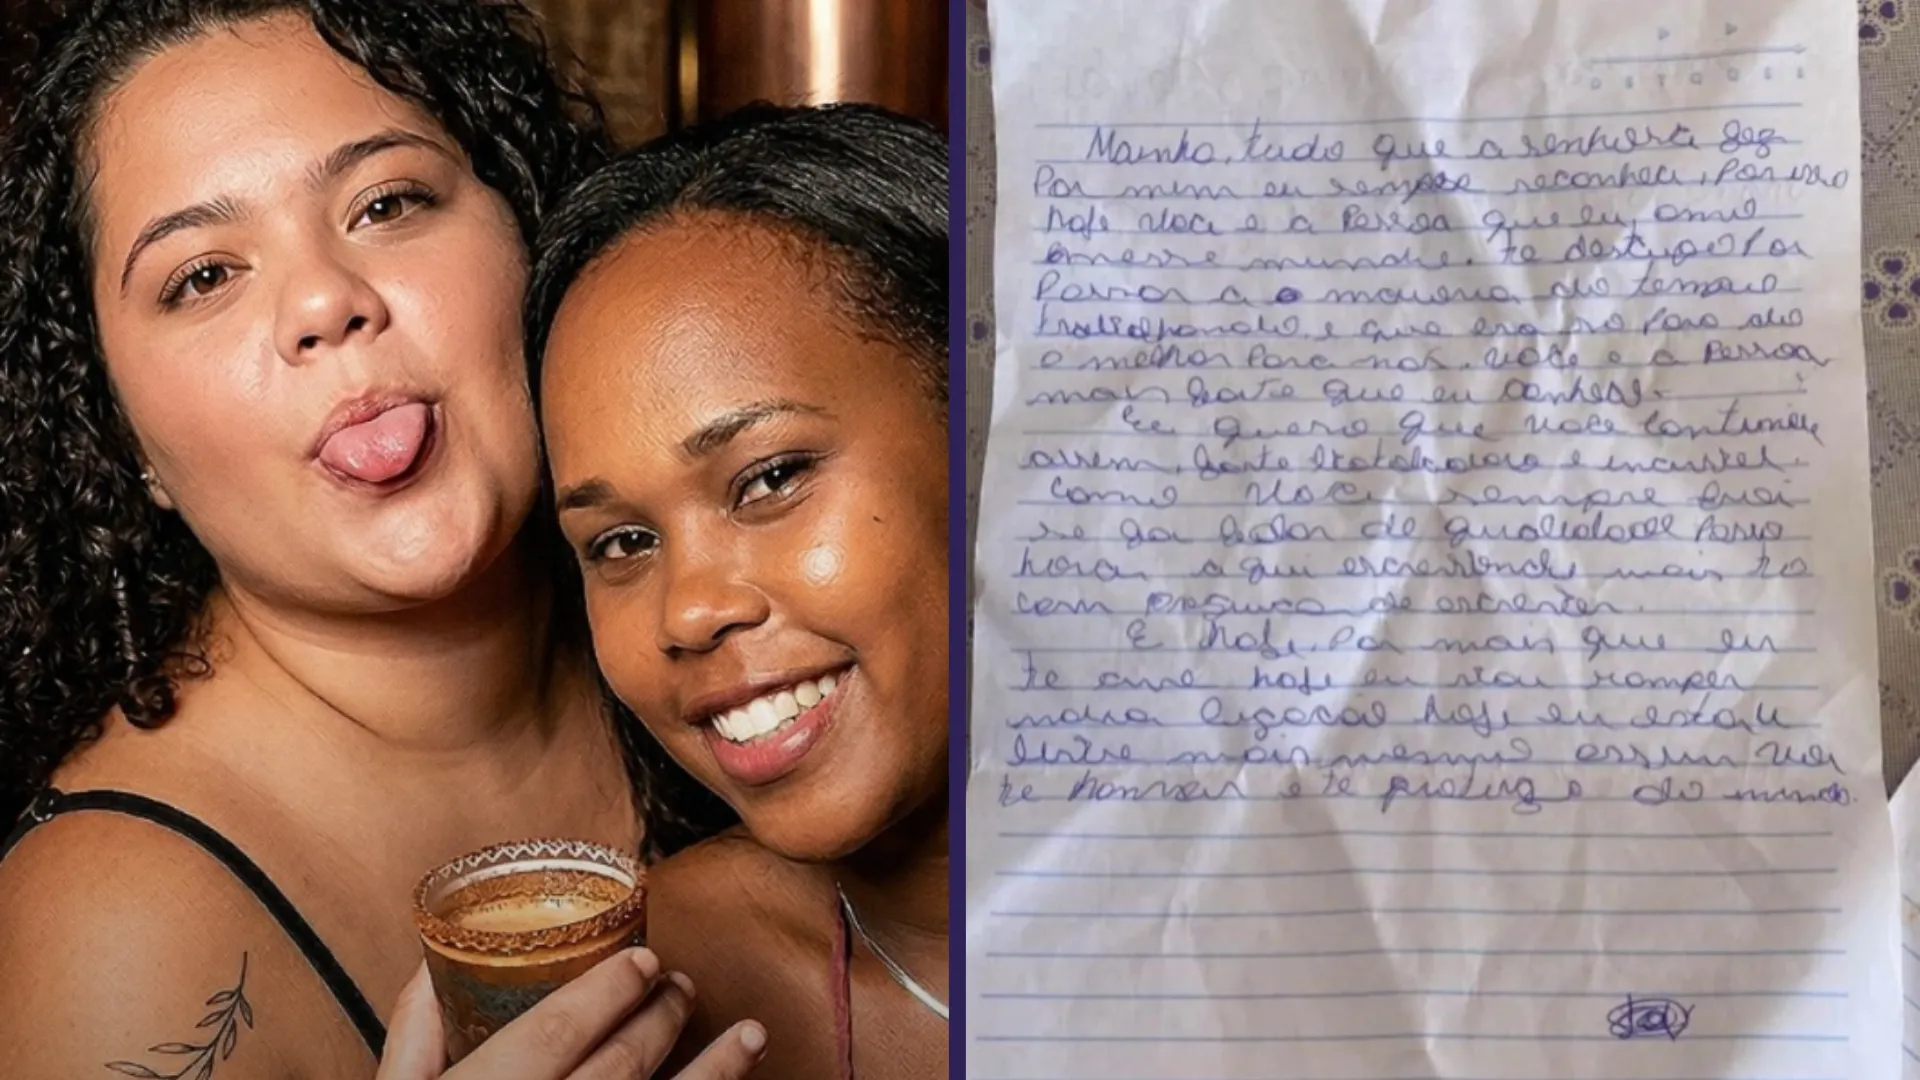 Mainha, tudo que a senhora fez
Por mim eu sempre reconheci, Por isso
hoje você e a Pessoa que eu amo
nesse mundo. te desculpo Por
Passar a maioria do tempo
trabalhando, e que era só Para da
o melhor Para nós. você e a Pessoa
mais forte que eu conheso.
Eu quero que você continue
assim, forte trabaladora e incrivel.
Como você sempre foi
se for falar de qualidade Passo
horas aqui escrevendo mais to
com preguisa de escrever.
E hoje, Por mais que eu
te ame hoje eu vou romper
nossa ligacao hoje eu
entre mais mesmo assim vou
te honrar e te proteger do mundo.